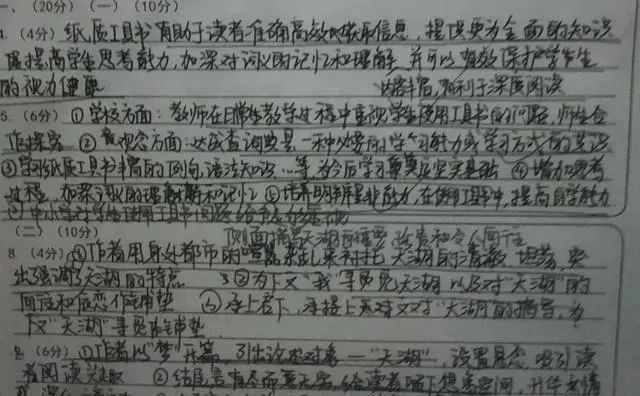 一、（20分）（一）（10分）
4.（4分）纸质工具书有助于读者准确高效地获取信息，提供更为全面的知识
提高学生思考能力，加深对词义的记忆和理解，并可以有效保护学生
的视力健康 内容丰富，有利于深度阅读
5.（6分）①学校方面：教师在日常生教学过程中重视学生使用工具书的问题，师生合
作探究 ②观念方面：达成查词典是一种必要的学习能力或学习方式的共识
③学习纸质工具书丰富的例句，语法知识……等，为今后学习奠定坚实基础 ④增加思考
过程，加深词义的理解和记忆 ⑤培养明辨是非能力，在使用工具书中，提高自学能力
中小学对学生使用工具书
（二）（10分）
侧面描写天湖的 珍贵和令人向往
8（4分）①作者用身处都市的喧嚣杂乱来衬托天湖的清激 坦荡，突
出强调了天湖的特点 ②为下文"我"寻觅见天湖以及对"天湖"的
向往和依恋作铺垫 承上启下，承接上文对"天湖"的描写，为
下文"天湖"寻觅作铺垫
（6分）①作者以"梦"开篇，引出论述对象—"天湖"，设置悬念，吸引读
者阅读兴趣 ②结尾言有尽而意无穷，给读者留下想象空间，升华